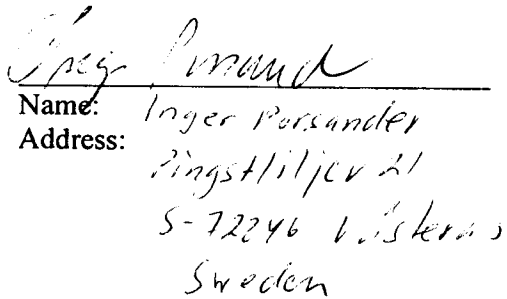 Name: Inger Porsander
Address:
Pingstliljev 21
S-72246 Västerås
Sweden